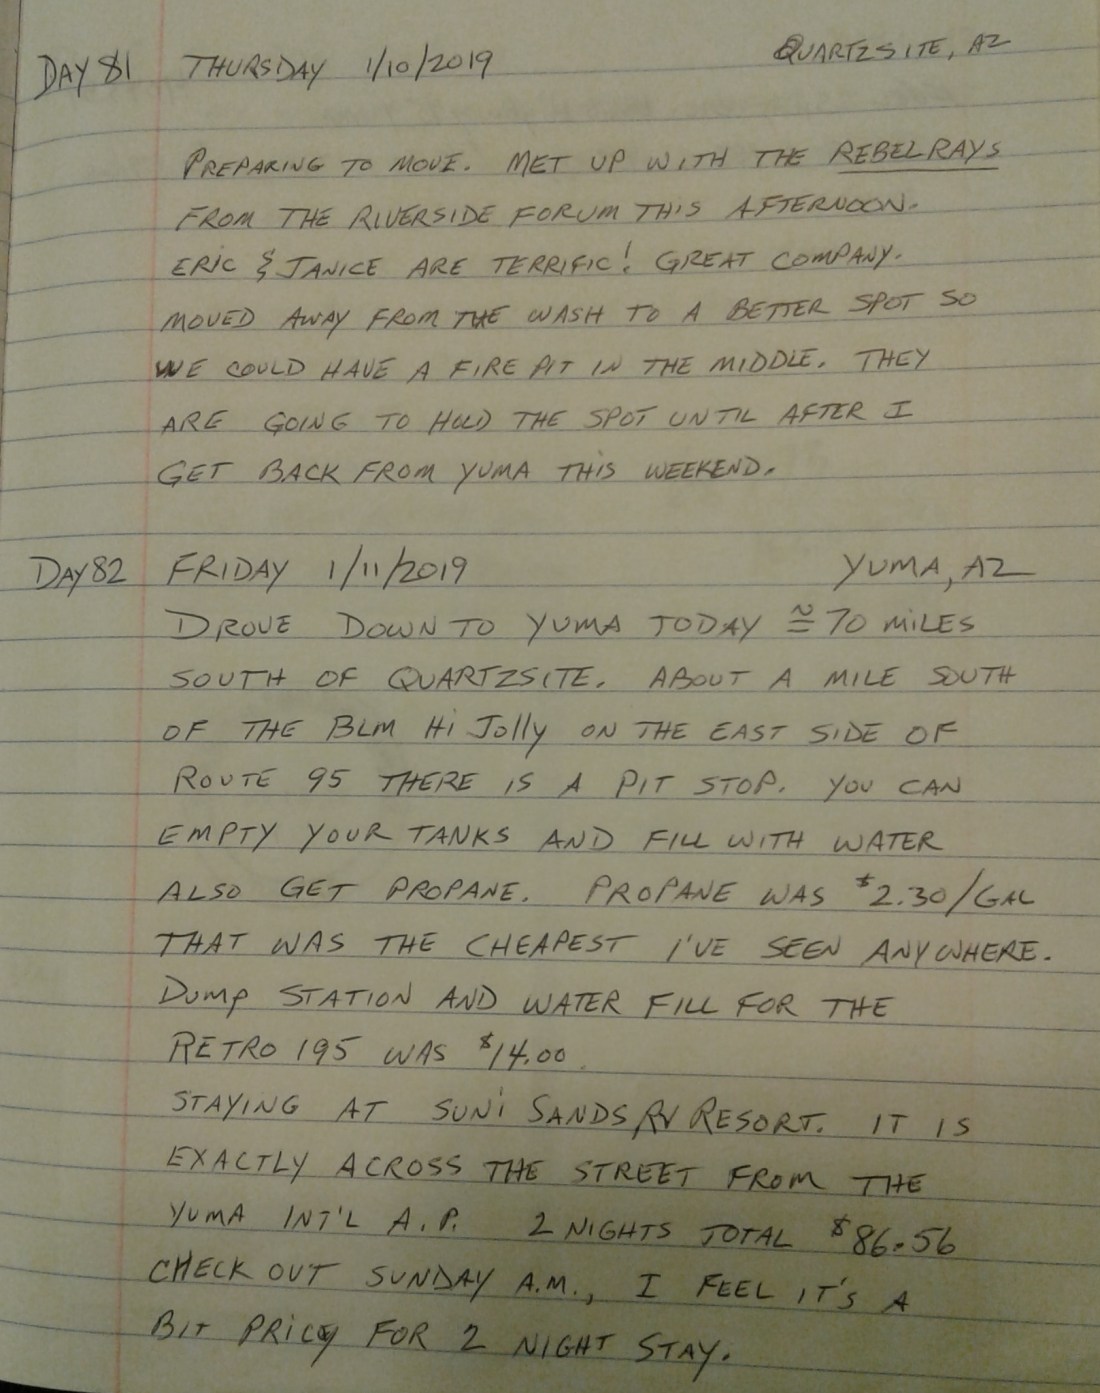 DAY 81 THURSDAY 1/10/2019 QUARTZSITE, AZ
PREPARING TO MOVE. MET UP WITH THE REBELRAYS
FROM THE RIVERSIDE FORUM THIS AFTERNOON.
ERIC & JANICE ARE TERRIFIC! GREAT COMPANY.
MOVED AWAY FROM THE WASH TO A BETTER SPOT SO
WE COULD HAVE A FIRE PIT IN THE MIDDLE. THEY
ARE GOING TO HOLD THE SPOT UNTIL AFTER I
GET BACK FROM YUMA THIS WEEKEND.
DAY 82 FRIDAY 1/11/2019 YUMA, AZ
DROVE DOWN TO YUMA TODAY ≅ 70 MILES
SOUTH OF QUARTZSITE. ABOUT A MILE SOUTH
OF THE BLM Hi Jolly ON THE EAST SIDE OF
ROUTE 95 THERE IS A PIT STOP. YOU CAN
EMPTY YOUR TANKS AND FILL WITH WATER
ALSO GET PROPANE. PROPANE WAS $2.30/GAL
THAT WAS THE CHEAPEST I'VE SEEN ANYWHERE.
DUMP STATION AND WATER FILL FOR THE
RETRO 195 WAS $14.00.
STAYING AT SUNI SANDS RV RESORT. IT IS
EXACTLY ACROSS THE STREET FROM THE
YUMA INT'L A.P. 2 NIGHTS TOTAL $86.56
CHECK OUT SUNDAY A.M., I FEEL IT'S A
BIT PRICY FOR 2 NIGHT STAY.